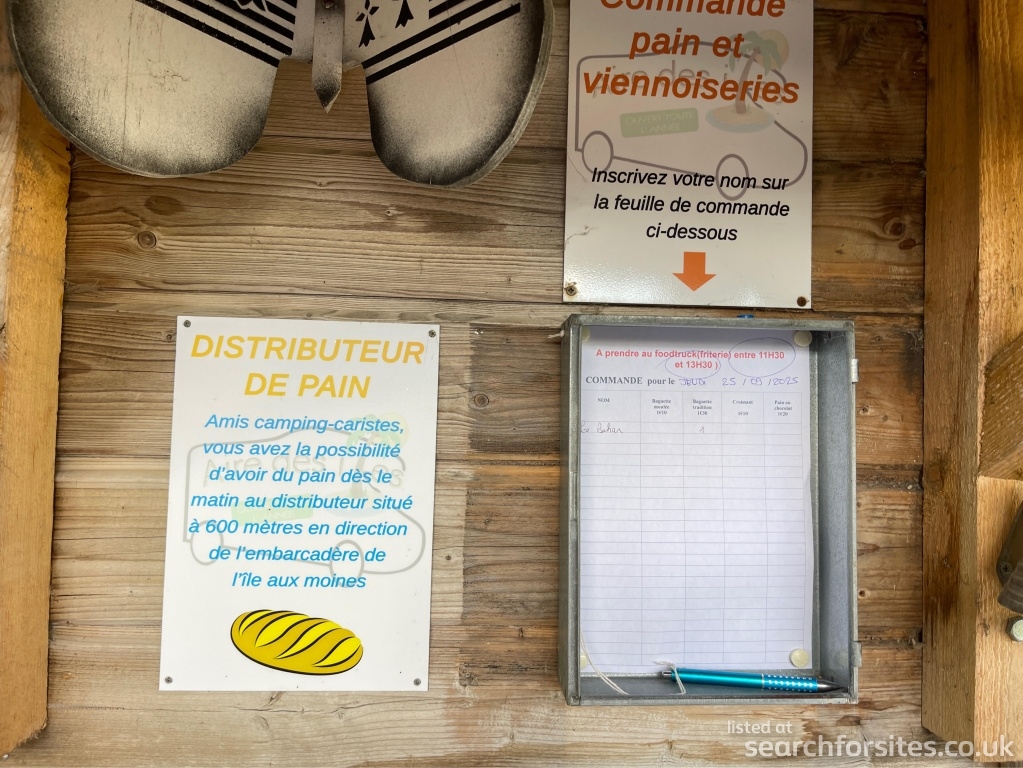 Commande
pain et
viennoiseries
Aire des îles
OUVERT TOUTE
L'ANNEE
Inscrivez votre nom sur
la feuille de commande
ci-dessous
DISTRIBUTEUR
DE PAIN
Amis camping-caristes,
vous avez la possibilité
d'avoir du pain dès le
matin au distributeur situé
à 600 mètres en direction
de l'embarcadère de
l'île aux moines
Aire des îles
A prendre au foodtruck(friterie) entre 11H30
et 13H30 )
COMMANDE pour le JEUDI 25 / 09 / 2025
NOM
Baguette
moulée
1€10
Baguette
tradition
1€30
Croissant
1€10
Pain au
chocolat
1€20
1
listed at
searchforsites.co.uk